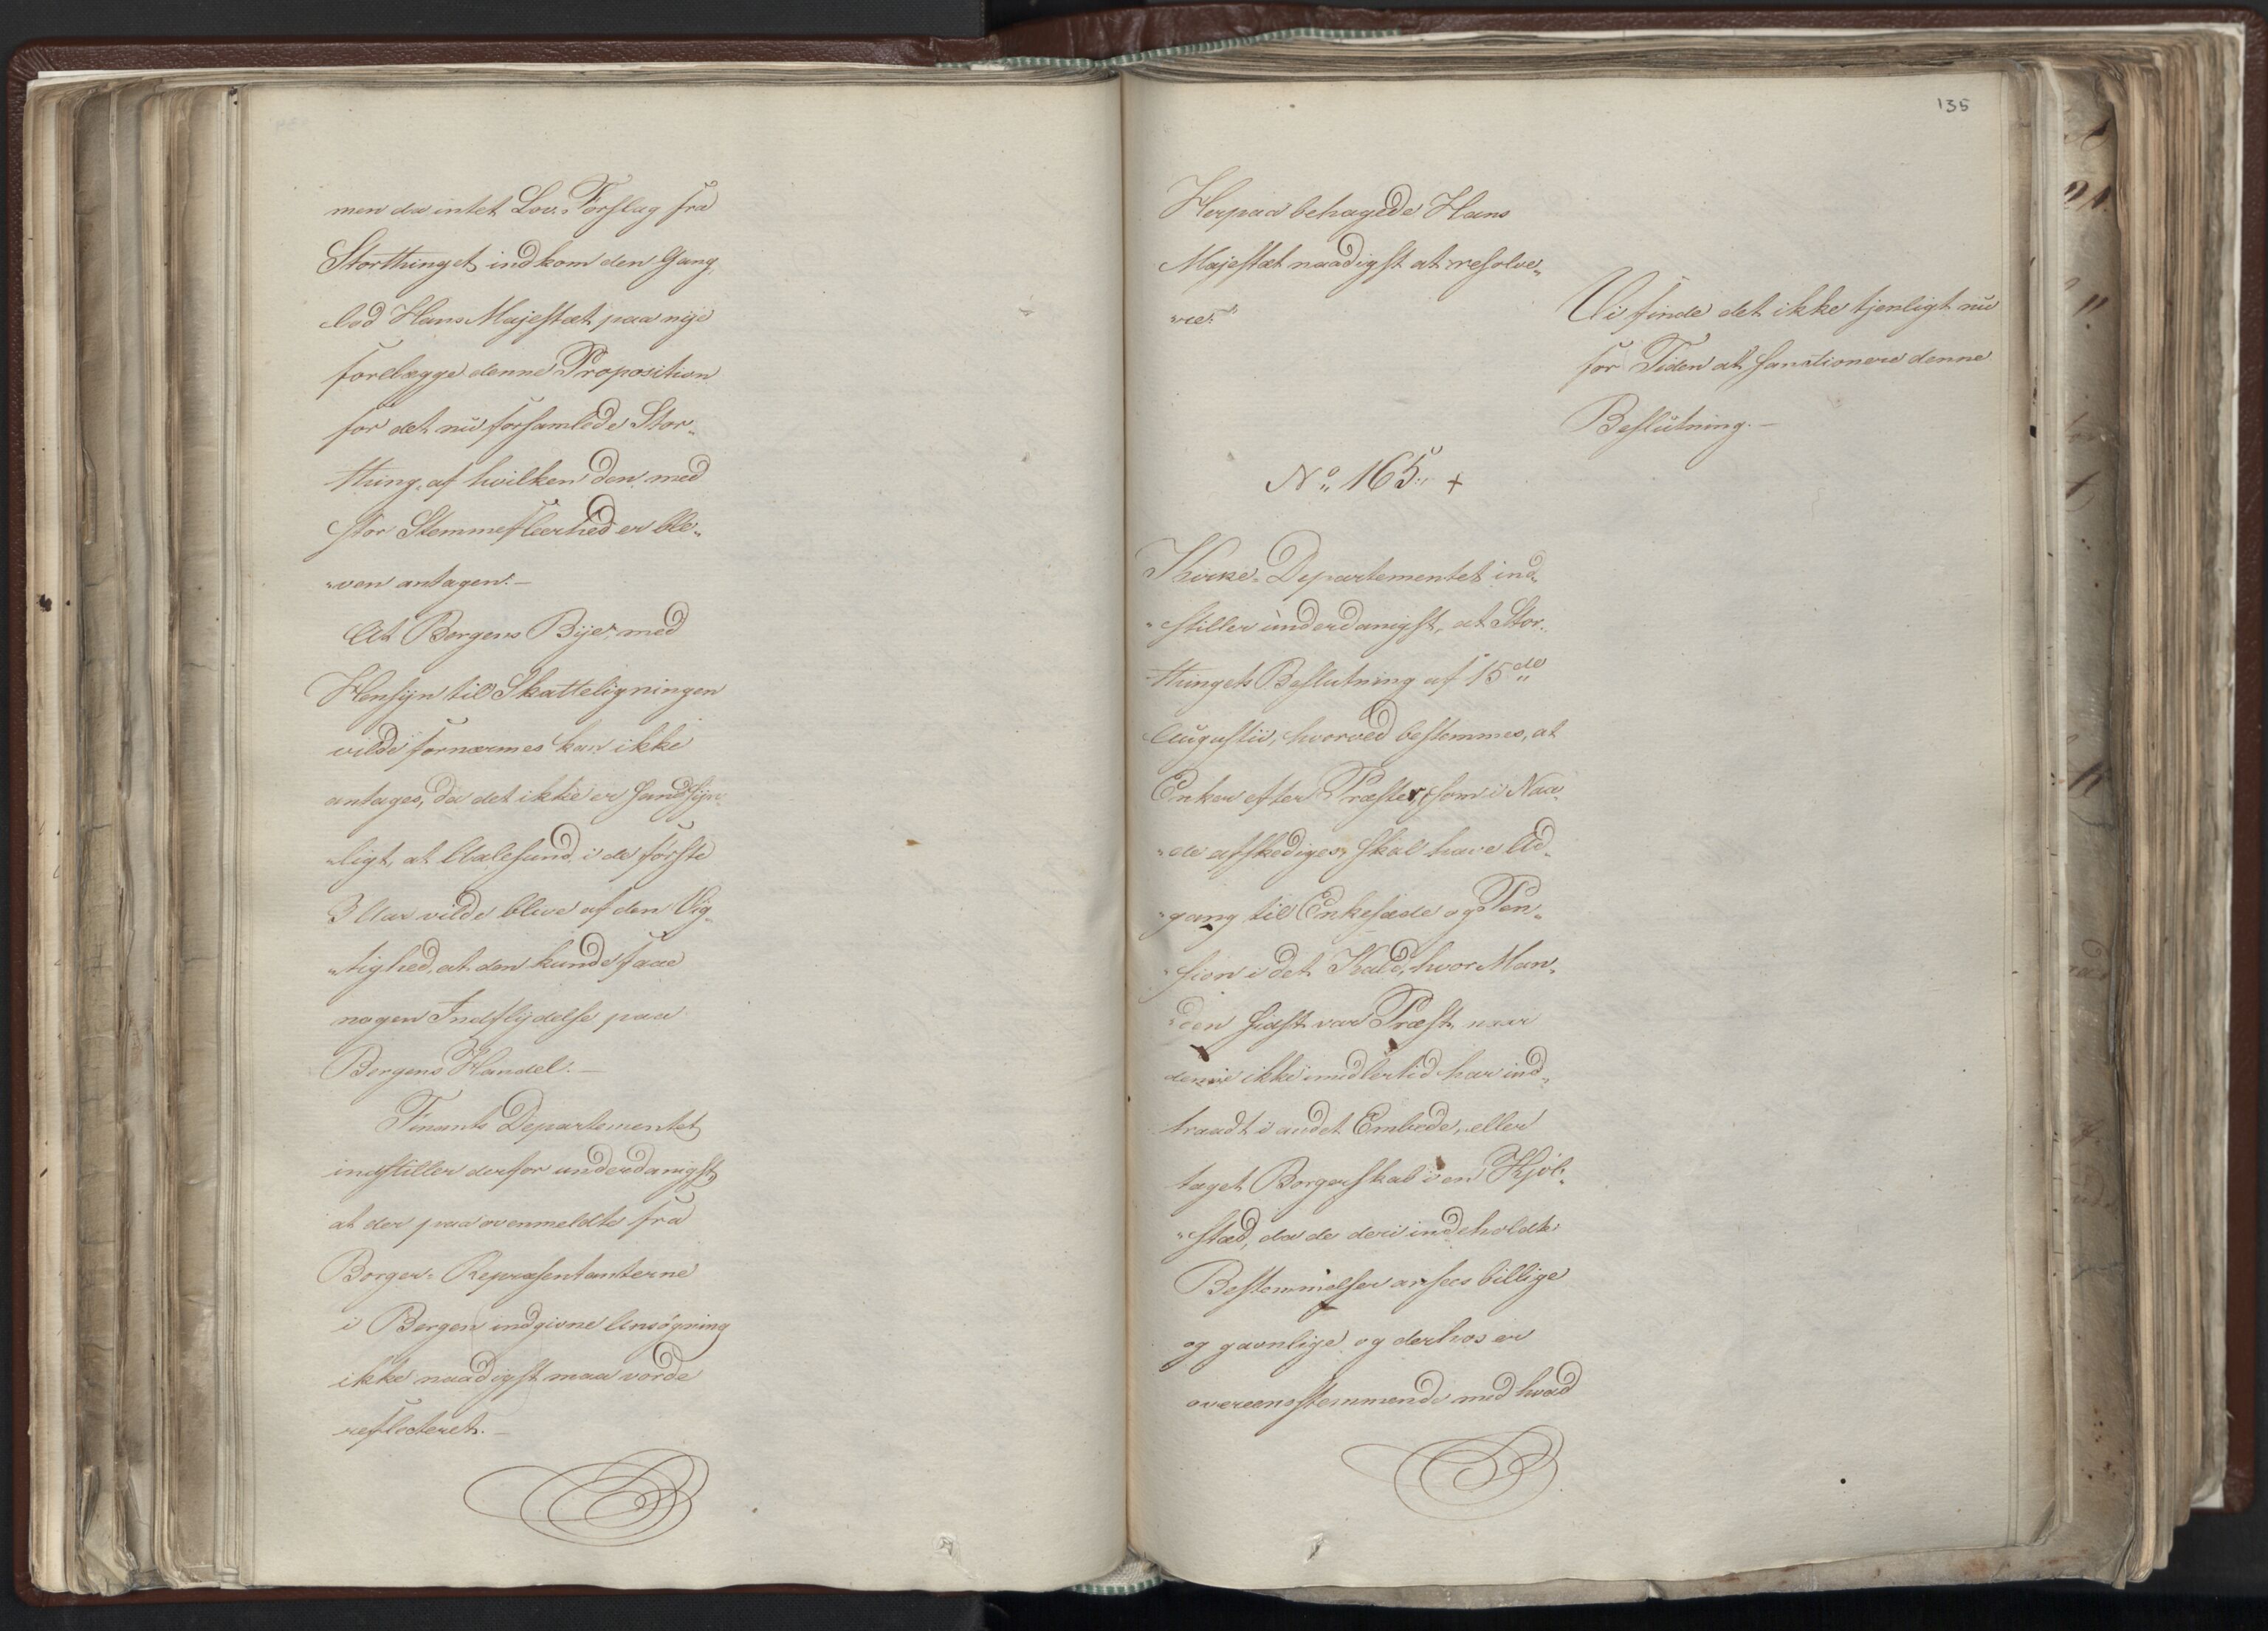 men da intet Lov-Forslag fra
Storthinget indkom den Gang,
lod Hans Majestæt paa nye
forelægge denne Proposition
for det nu forsamlede Stor„
thing, af hvilken den med
stor Stemmefleerhed er ble„
„ven antagen.—
At Bergens Bye, med
Hensyn til Skatteligningen
vilde fornærmes kan ikke
antages, da det ikke er sandsyn„
„ligt, at Aalesund, i de første
3 Aar vilde blive af den Vig„
„tighed, at den kunde faae
nogen Indflydelse paa
Bergens Handel.—
Finants Departementet
indstiller derfor underdanigst,
at der paa ovenmeldte fra
Borger-Repræsentanterne
i Bergen indgivne Ansøgning
ikke naadigst maa vorde
reflecteret.—
135
Herpaa behagede Hans
Majestæt naadigst at resolve„
„re:
Vi finde det ikke tjenligt nu
for Tiden at sanctionere denne
Beslutning.—
No 165. +
Kirke-Departementet ind„
„stiller underdanigst, at Stor„
thingets Beslutning af 15de
Augustii, hvorved bestemmes, at
Enker efter Præster, som i Naa„
„de afskediges, skal have Ad„
„gang til Enkesæde og Pen„
„sion i det Kald, hvor Man„
„den sidst var Præst, naar
denne ikke imidlertid har ind„
traadt i andet Embede, eller
taget Borgerskab i en Kjøb„
„stæd, da de deri indeholdte
Bestemmelser ansees billige
og gavnlige og derhos er
overeensstemmende med hvad